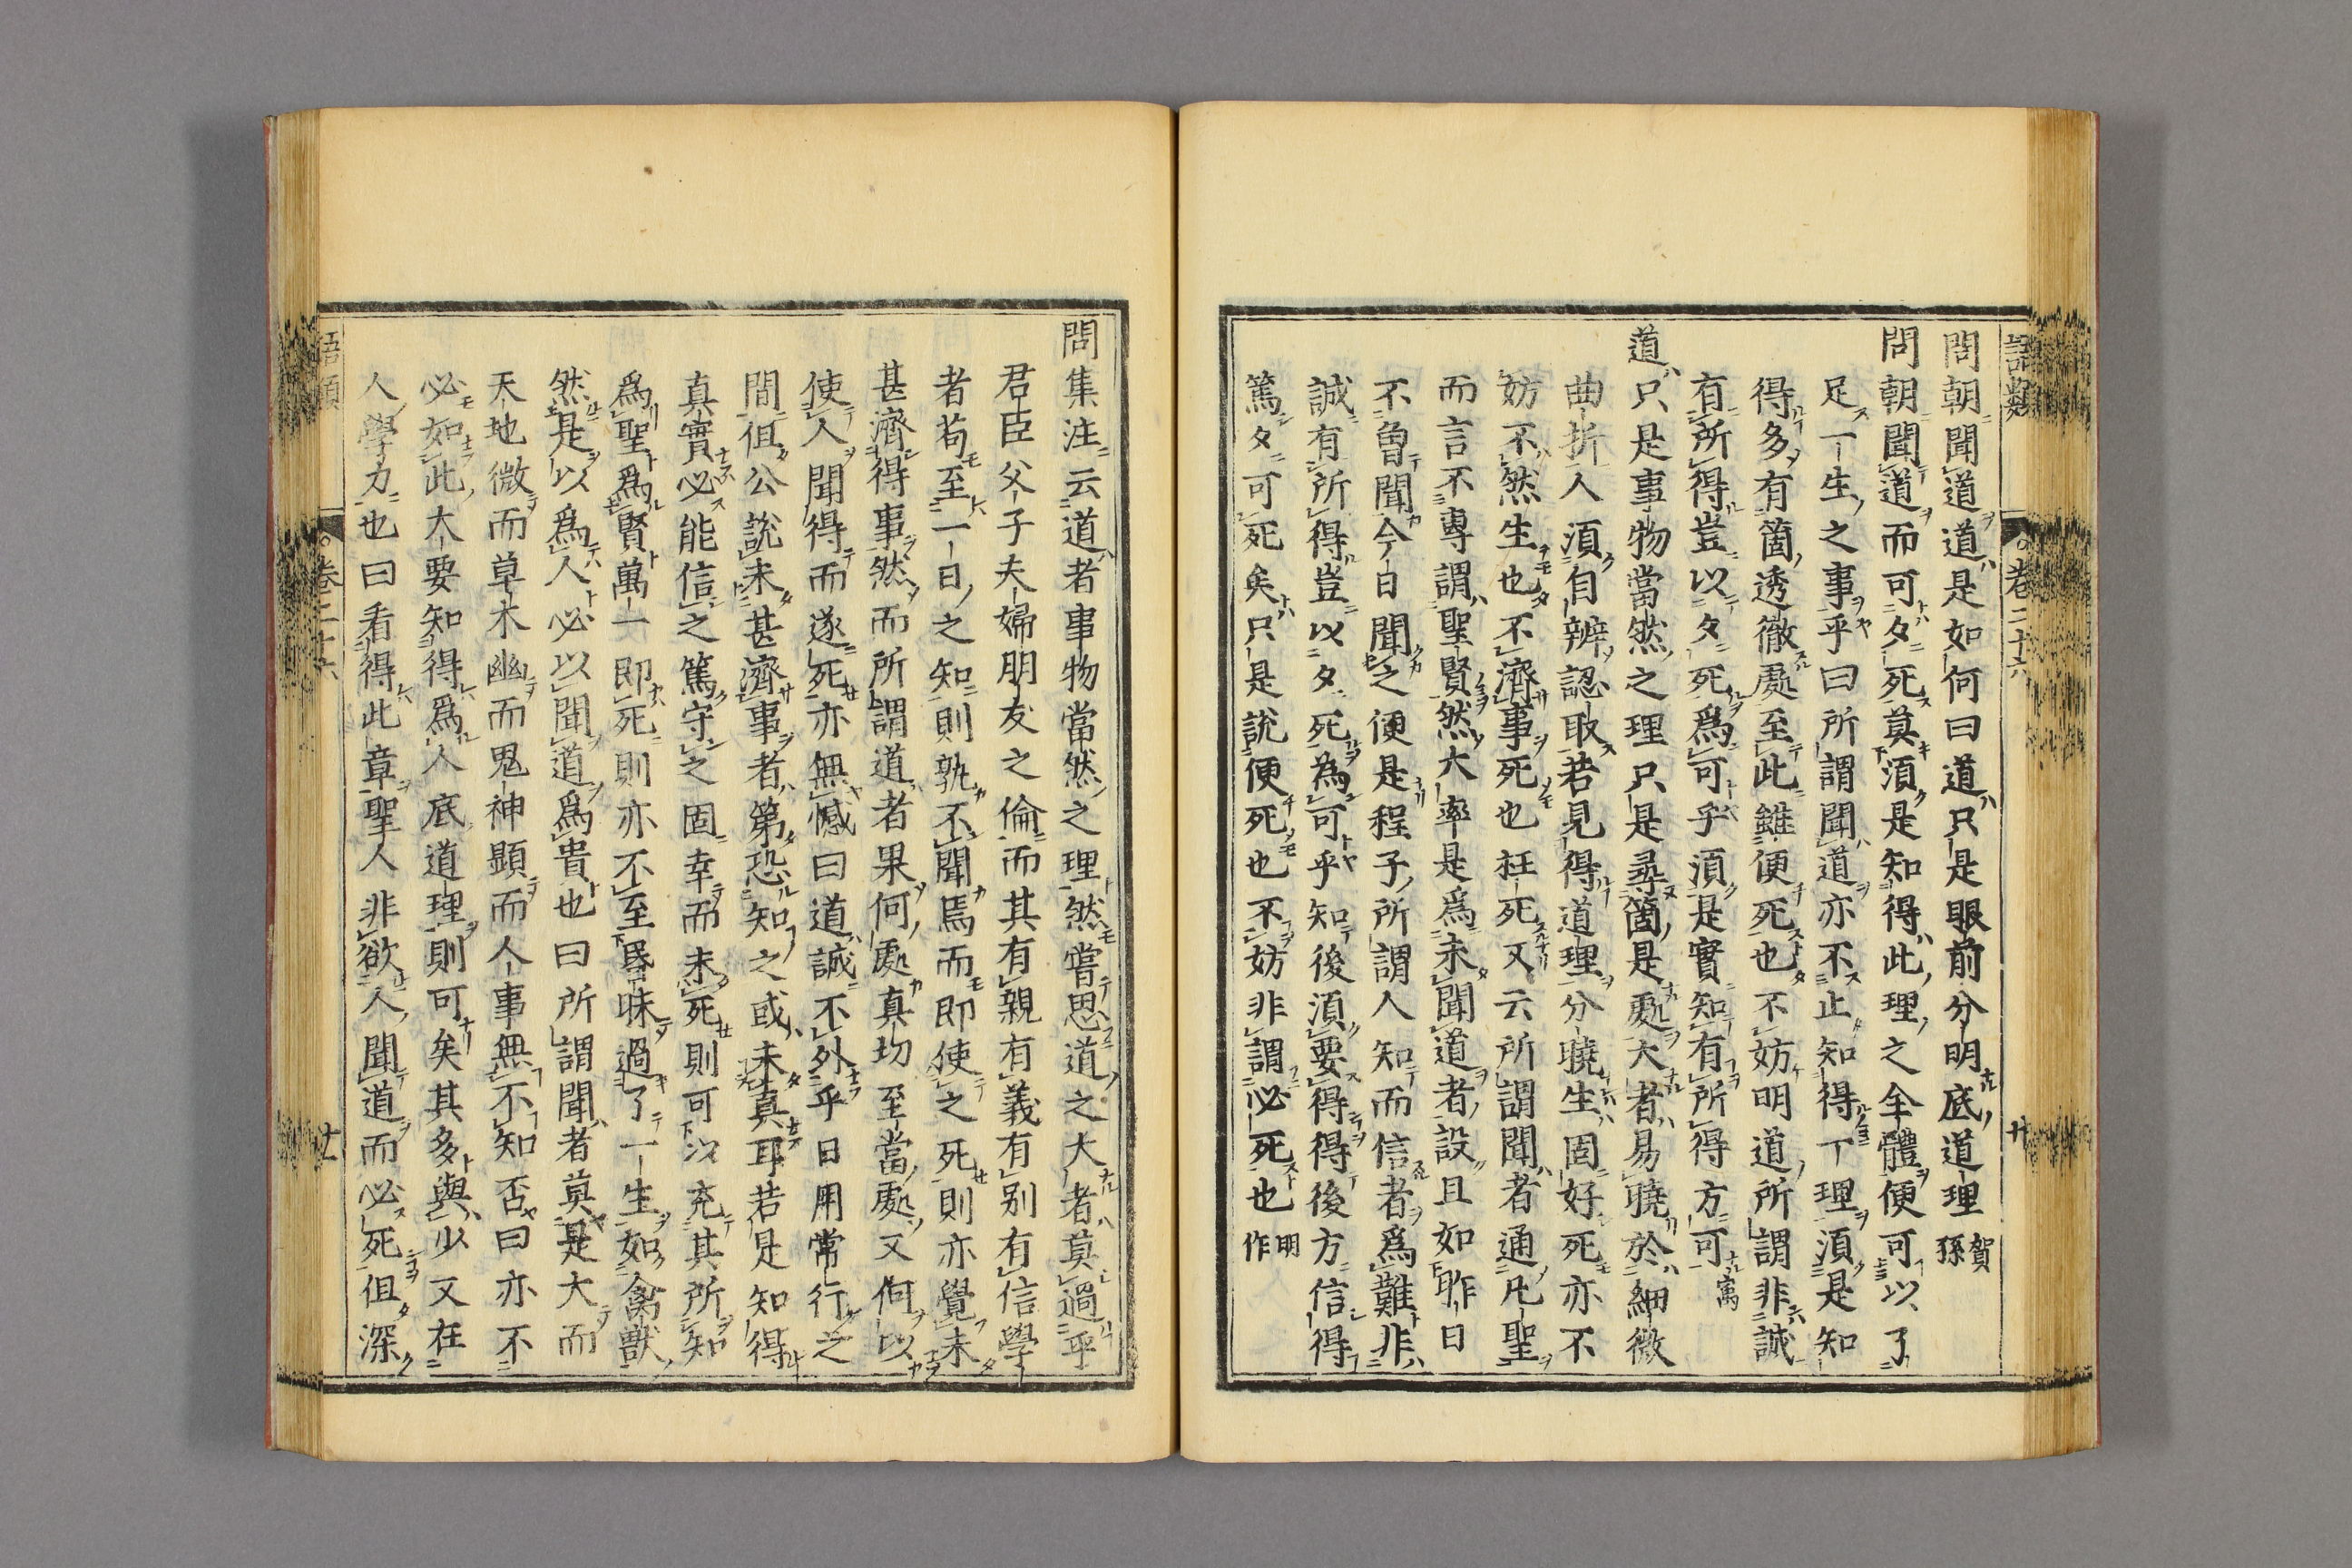 語類 卷二十六 廿
問朝聞道道是如何曰道只是眼前分明底道理賀孫
問朝聞道而可夕死莫須是知得此理之全體便可以了
足一生之事乎曰所謂聞道亦不止知得一理須是知
得多有箇透徹處至此雖便死也不妨明道所謂非誠
有所得豈以夕死為可乎須是實知有所得方可㝢
道只是事物當然之理只是尋箇是處大者易曉於細微
曲折人須自辨認取若見得道理分曉生固好死亦不
妨不然生也不濟事死也枉死又云所謂聞者通凡聖
而言不專謂聖賢然大率是為未聞道者設且如昨日
不曾聞今日聞之便是程子所謂人知而信者為難非
誠有所得豈以夕死為可乎知後須要得得後方信得
篤夕可死矣只是說便死也不妨非謂必死也明作
問集注云道者事物當然之理然嘗思道之大者莫過乎
君臣父子夫婦朋友之倫而其有親有義有别有信學
者苟至一日之知則孰不聞焉而即使之死則亦覺未
甚濟得事然而所謂道者果何處真切至當處又何以
使人聞得而遂死亦無憾曰道誠不外乎日用常行之
間但公說未甚濟事者第恐知之或未真耳若是知得
真實必能信之篤守之固幸而未死則可以充其所知
為聖為賢萬一即死則亦不至昏昧過了一生如禽獸
然是以為人必以聞道為貴也曰所謂聞者莫是大而
天地微而草木幽而鬼神顯而人事無不知否曰亦不
必如此大要知得為人底道理則可矣其多與少又在
人學力也曰看得此章聖人非欲人聞道而必死但深
語類 卷二十六